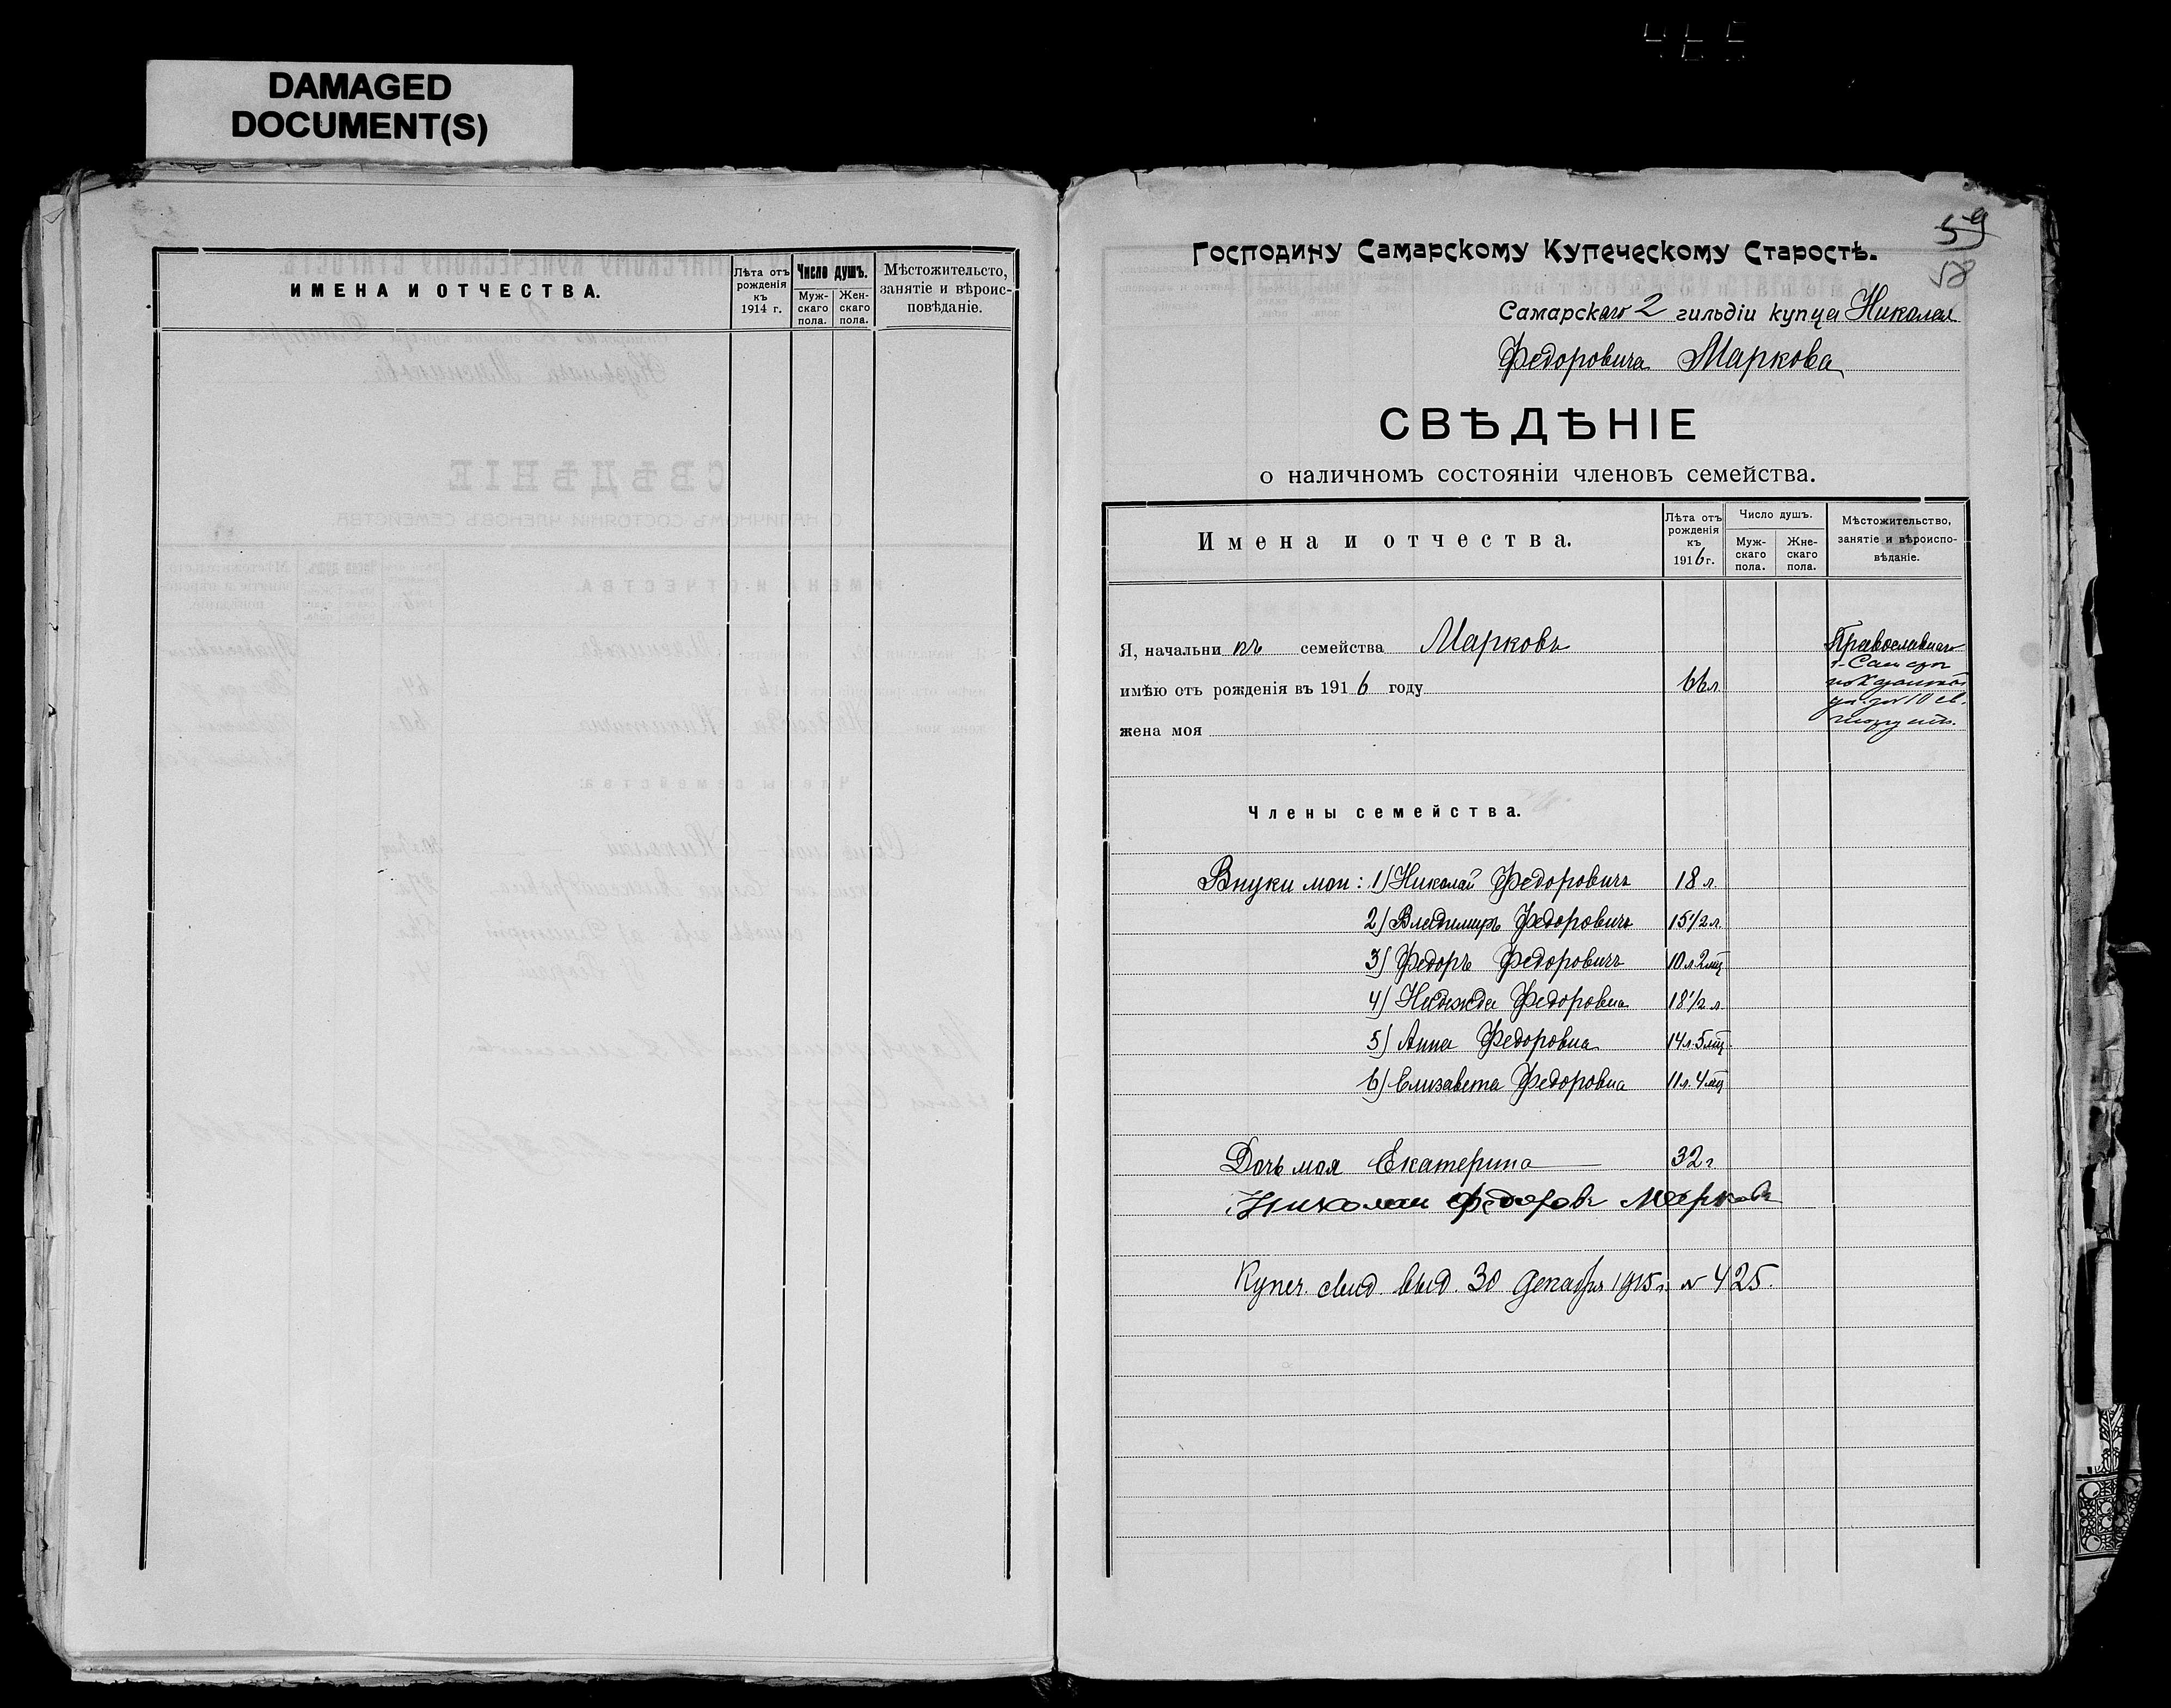 DAMAGED
DOCUMENT(S)
ИМЕНА И ОТЧЕСТВА.
Лѣта отъ
рожденія
къ
1914 г.
Число душъ.
Муж-
скаго
пола.
Жен-
скаго
пола.
Мѣстожительсто,
занятіе и вѣроис-
повѣданіе.
59
58
Господину Самарскому Купеческому Старостѣ.
Самарскаго 2 гильдіи купца Николая
Федоровича Маркова
СВѢДѢНІЕ
о наличномъ состояніи членовъ семейства.
Имена и отчества.
Лѣта отъ
рожденія
къ
1916 г.
Число душъ.
Муж-
скаго
пола.
Жне-
скаго
пола.
Мѣстожительство,
занятіе и вѣроиспо-
вѣданіе.
Я, начальникъ семейства Марковъ
Православнаго
имѣю отъ рожденія въ 1916 году 66 л
жена моя
Члены семейства.
Внуки мои: 1) Николай Федоровичъ 18 л.
2) Владимиръ Федоровичъ 15 1/2 л.
3) Федоръ Федоровичъ 10 л. 2 мц
4) Надежда Федоровна 18 1/2 л
5) Анна Федоровна 14 л. 5 мц
6) Елизавета Федоровна 11 л. 4 мц
Дочь моя Екатерина 32 г
Николай Федоровъ Марковъ
Купеч. свид. выд. 30 декабря 1915 г. № 425.